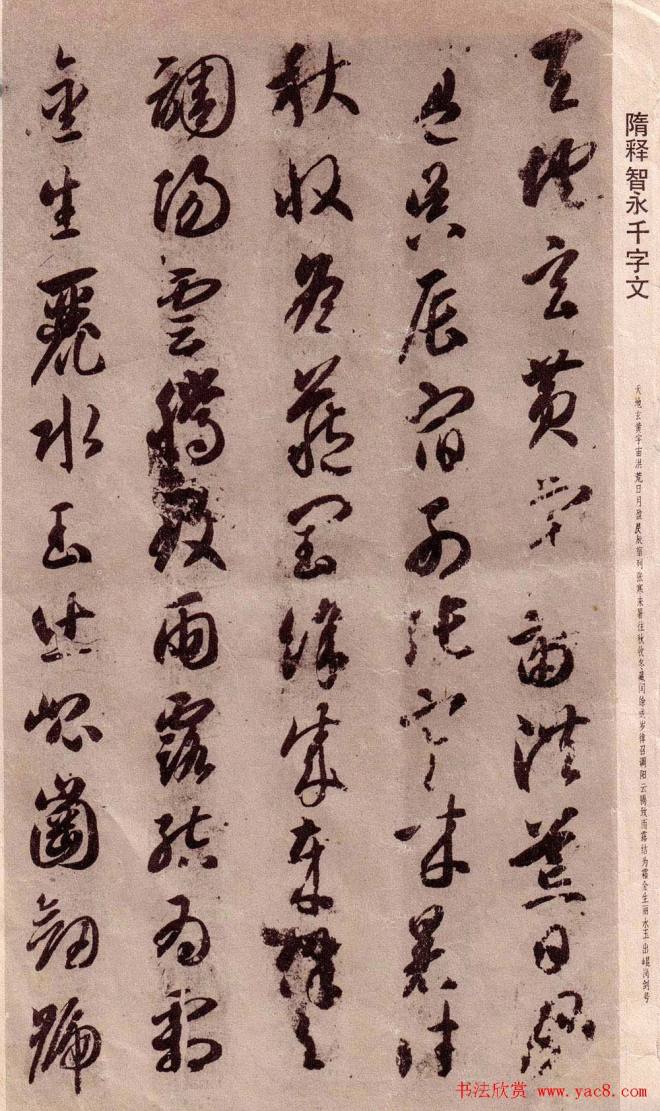 隋释智永千字文
天地玄黄宇宙洪荒日月盈昃辰宿列张寒来暑往秋收冬藏闰馀成岁律召调阳云腾致雨露结为霜金生丽水玉出崐岗剑号
天地玄黄宇宙洪荒日月
盈昃辰宿列張寒來暑往
秋收冬藏閏餘成歲律召
調陽雲騰致雨露結為霜
金生麗水玉出崐崗劍號
书法欣赏 www.yac8.com